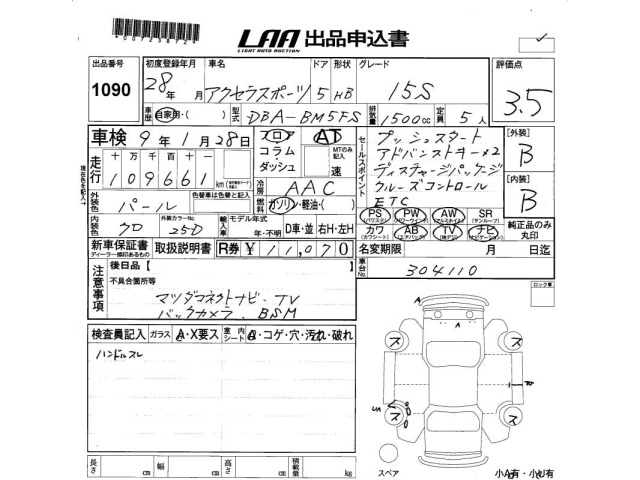 LAA 出品申込書
LIGHT AUTO AUCTION
出品番号 1090
初度登録年月 28年 月
車名 アクセラスポーツ
ドア 形状 5 HB
グレード 15S
評価点 3.5
車歴 自家用・( )
型式 DBA-BM5FS
排気量 1500cc
定員 5人
車検 9年 1月 28日
フロア コラム・ダッシュ
AT
MTのみ記入 速
セールスポイント
プッシュスタート
アドバンストキー×2
ディスチャージパッケージ
クルーズコントロール
ETC
[外装] B
[内装] B
現在色を記入
走行 十 万 千 百 十 一
109661 km
冷房 AAC
外装色 パール
色替車は色替と記入
燃料 ガソリン・軽油・( )
PS (パワステ) PW (パワーウインド) AW (アルミホイル) SR (サンルーフ)
カワ (カワシート) AB (エアバッグ) TV (地デジ) ナビ (ナビゲーション)
純正品のみ丸印
内装色 クロ
外装カラーNo. 25D
輸入車 モデル年式 年・不明
D車・並 右H・左H
新車保証書 ディーラー捺印あるもの
取扱説明書
R券 ¥ 11,070
名変期限 月 日迄
車台No. 304110
注意事項
後日品【
不具合箇所等
マツダコネクトナビ・TV
バックカメラ・BSM
ロック車
検査員記入 ガラス A・X要ス
車内シート コゲ・穴・汚れ・破れ
ハンドルスレ
A
ス ス
ス ス
UA
長さ cm 幅 cm 高さ cm 積載量 kg
スペア
小A有・小U有